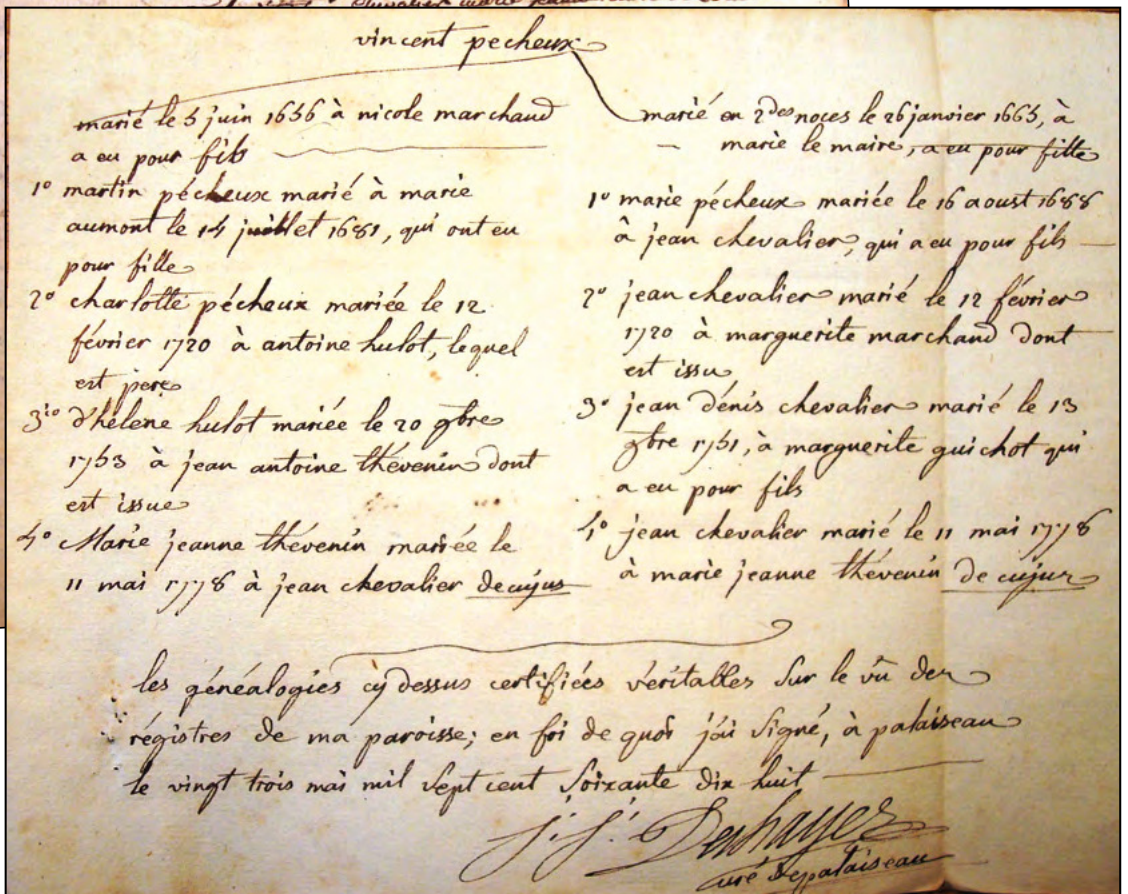 vincent pecheux
marié le 5 juin 1656 à nicole marchand
a eu pour fils
1° martin pécheux marié à marie
aumont le 14 juillet 1681, qui ont eu
pour fille
2° charlotte pécheux mariée le 12
février 1720 à antoine hulot, lequel
est pere
3io d'hélene hulot mariée le 20 9bre
1753 à jean antoine thévenin dont
est issue
4° Marie jeanne thévenin mariée le
11 mai 1778 à jean chevalier decujus
marié en 2des noces le 26 janvier 1665, à
marie le maire, a eu pour fille
1° marie pécheux mariée le 16 aoust 1688
à jean chevalier, qui a eu pour fils
2° jean chevalier marié le 12 février
1720 à marguerite marchand dont
est issu
3° jean dénis chevalier marié le 13
9bre 1751, à marguerite guichot qui
a eu pour fils
4° jean chevalier marié le 11 mai 1778
à marie jeanne thévenin de cujus
les généalogies cy dessus certifiées véritables sur le vû des
régistres de ma paroisse; en foi de quoi j'ai signé, à palaiseau
le vingt trois mai mil sept cent soixante dix huit
J. J. Deshayes
curé de palaiseau